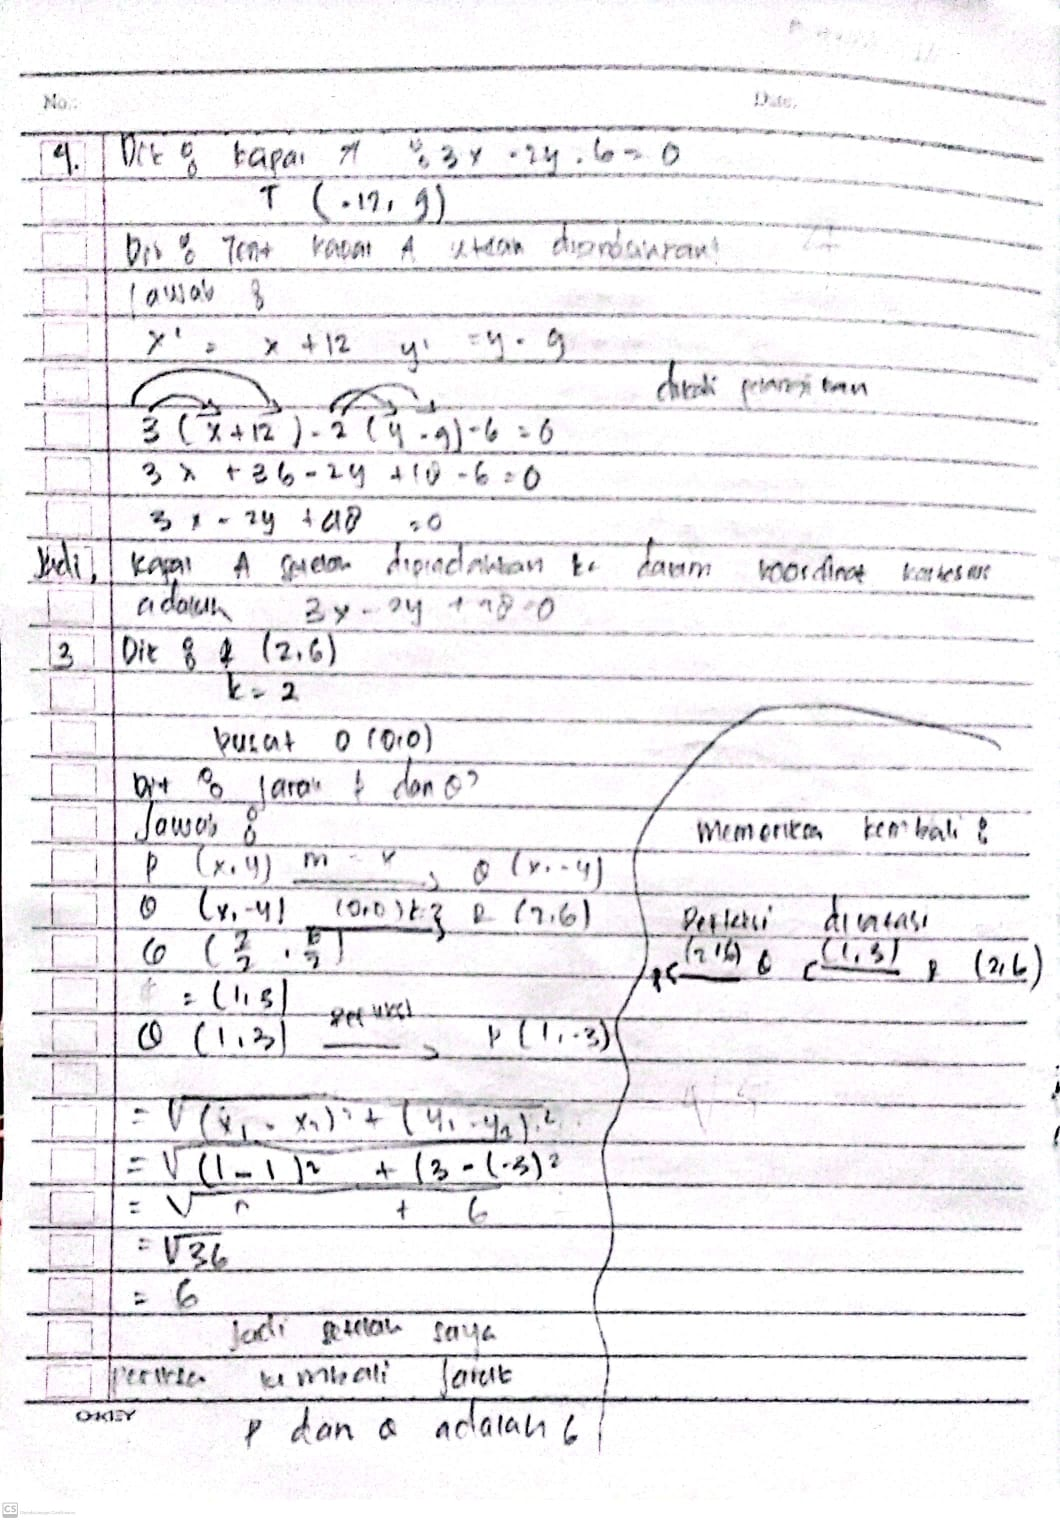 No.: Date:
4. Dik : kapal A : 3x - 2y - 6 = 0
T (-12, 9)
Dit : Tent kapal A setelah dipindahkan!
Jawab :
x' = x + 12 y' = y - 9
dikali pelangi kan
3 (x + 12) - 2 (y - 9) - 6 = 0
3x + 36 - 2y + 18 - 6 = 0
3x - 2y + 48 = 0
Jadi, kapal A setelah dipindahkan ke dalam koordinat kartesius
adalah 3x - 2y + 48 = 0
3 Dik : (2,6)
k = 2
pusat O (0,0)
Dit : Jarak P dan Q?
Jawab :
P (x, y) m - x Q (x, -y)
Q (x, -y) (0,0) k=2 R (2,6)
Q (2/2 , 6/2)
= (1,3)
Q (1,3) refleksi P (1, -3)
= √(x₁ - x₂)² + (y₁ - y₂)²
= √(1 - 1)² + (3 - (-3)²
= √ + 6
= √36
= 6
Jadi setelah saya
periksa kembali Jarak
P dan Q adalah 6
Memeriksa kembali :
Refleksi dilatasi
P (2,6) Q (1,3) R (2,6)
OKEY
CS